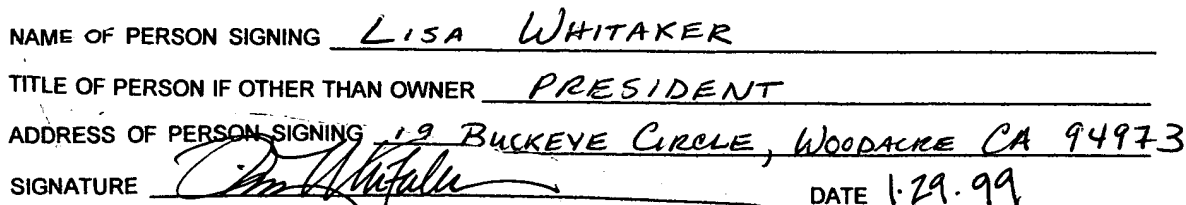 NAME OF PERSON SIGNING LISA WHITAKER
TITLE OF PERSON IF OTHER THAN OWNER PRESIDENT
ADDRESS OF PERSON SIGNING 19 BUCKEYE CIRCLE, WOODACRE CA 94973
SIGNATURE Whitaker DATE 1.29.99